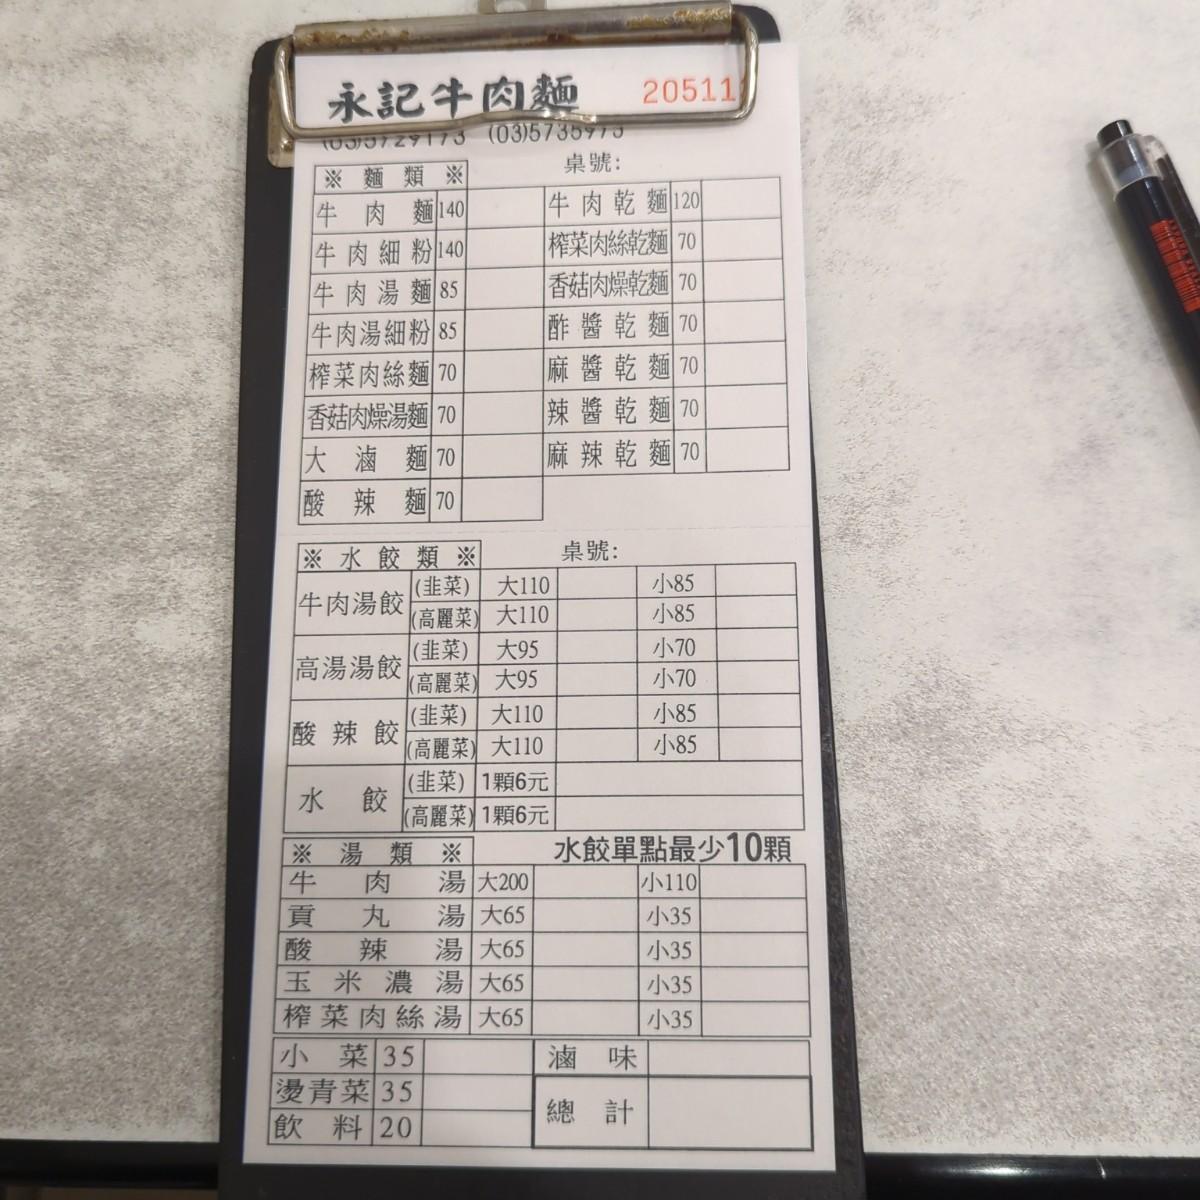 永記牛肉麵 20511
(03)5729173 (03)5735975
桌號:
※ 麵類 ※
牛肉麵 140 牛肉乾麵 120
牛肉細粉 140 榨菜肉絲乾麵 70
牛肉湯麵 85 香菇肉燥乾麵 70
牛肉湯細粉 85 酢醬乾麵 70
榨菜肉絲麵 70 麻醬乾麵 70
香菇肉燥湯麵 70 辣醬乾麵 70
大滷麵 70 麻辣乾麵 70
酸辣麵 70
※ 水餃類 ※ 桌號:
牛肉湯餃 (韭菜) 大110 小85
(高麗菜) 大110 小85
高湯湯餃 (韭菜) 大95 小70
(高麗菜) 大95 小70
酸辣餃 (韭菜) 大110 小85
(高麗菜) 大110 小85
水餃 (韭菜) 1顆6元
(高麗菜) 1顆6元
※ 湯類 ※ 水餃單點最少10顆
牛肉湯 大200 小110
貢丸湯 大65 小35
酸辣湯 大65 小35
玉米濃湯 大65 小35
榨菜肉絲湯 大65 小35
小菜 35 滷味
燙青菜 35 總計
飲料 20